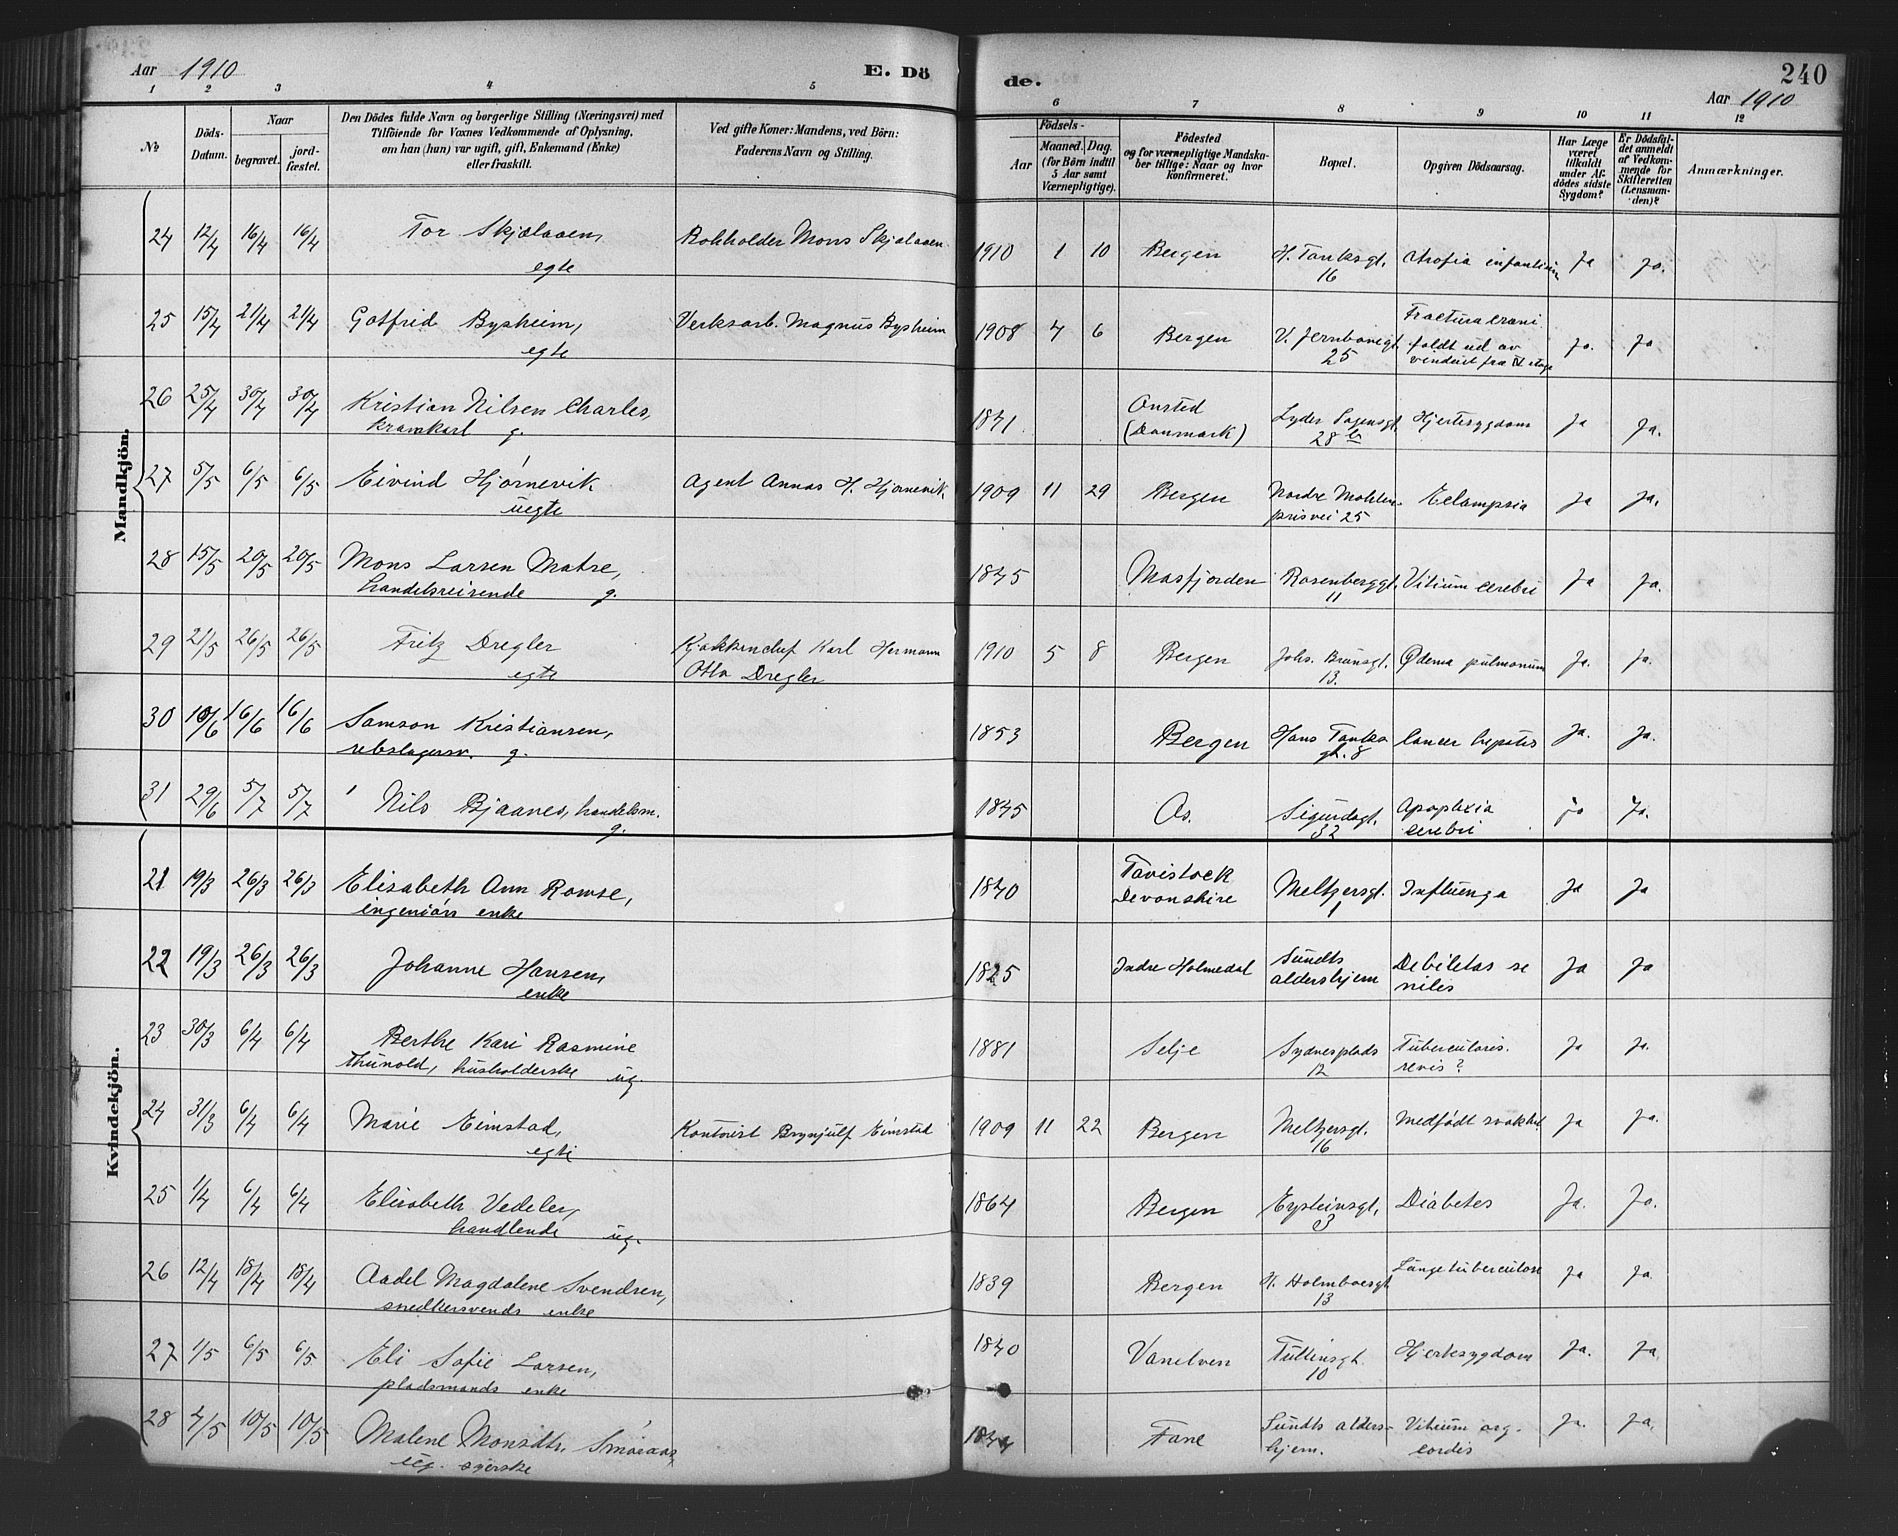 Aar 1910
E. Dö
de.
240
Aar 1910
1 2 3 4 5 6 7 8 9 10 11 12
No
Döds-
Datum.
Naar
begravet.
jord-
fæstet.
Den Dödes fulde Navn og borgerlige Stilling (Næringsvei) med
Tilföiende for Voxnes Vedkommende af Oplysning,
om han (hun) var ugift, gift, Enkemand (Enke)
eller fraskilt.
Ved gifte Koner: Mandens, ved Börn:
Faderens Navn og Stilling.
Födsels-
Aar
Maaned. Dag.
(for Börn indtil
5 Aar samt
Værnepligtige).
Födested
og for værnepligtige Mandska-
ber tillige: Naar og hvor
konfirmeret.
Bopæl.
Opgiven Dödsaarsag.
Har Læge
været
tilkaldt
under Af-
dödes sidste
Sygdom?
Er Dödsfal-
det anmeldt
af Vedkom-
mende for
Skifteretten
(Lensman-
den)?
Anmærkninger.
Mandkjön.
24 12/4 16/4 16/4 Tor Skjælaaen, Mons Skjælaaen 1910 1 10 Bergen H. Tanksgt. infantium Ja Ja.
egte 16
25 15/4 21/4 21/4 Gotfrid Bysheim, Verksarb. Magnus Bysheim 1908 4 6 Bergen V. Jernbanegt. Fractura crani Ja. Ja
egte 25 faldt ud av
vinduet fra etage
26 25/4 30/4 30/4 Kristian Nilsen Charles, 1841 Onsted Lyder Sagensgt. Hjertesygdom Ja Ja.
krankarl g. (Danmark) 28
27 5/5 6/5 6/5 Eivind Hjørnevik Agent Annas H. Hjørnevik 1909 11 29 Bergen Nordre Møhlen- Eclampsia Ja Ja.
uegte prisvei 25
28 15/5 20/5 20/5 Mons Larsen Matre, 1845 Masfjorden Rosenberggt. Vitium cerebri Ja Ja.
handelsreisende g. 11
29 21/5 26/5 26/5 Fritz Dregler Kjøkkenchef Karl Hermann 1910 5 8 Bergen Johs. Brunsgt. Ødema pulmonum Ja. Ja.
egte Otto Dregler 13.
30 10/6 16/6 16/6 Samson Kristiansen, 1853 Bergen Hans Tanks Cancer hepatis Ja. Ja.
rebslagersv. g. gt. 8
31 29/6 5/7 5/7 Nils Bjaanes, handelsm. 1845 Os. Sigurdsgt. Apoplexia Ja Ja.
g. 32 cerebri
Kvindekjön.
21 19/3 26/3 26/3 Elisabeth Ann Rowse, 1840 Tavistock Meltzersgt. Influenza Ja Ja
ingeniörs enke Devonshire 1
22 19/3 26/3 26/3 Johanne Hansen, 1825 Indre Holmedal Sundts Debiletas se Ja Ja
enke aldershjem niles
23 30/3 6/4 6/4 Berthe Kari Rasmine 1881 Selje Sydnesplads Tuberculosis. Ja Ja.
Thunold, husholderske ug. 12
24 31/3 6/4 6/4 Marie Eimstad, Kontorist Brynjulf Eimstad 1909 11 22 Bergen Meltzersgt. Medfödt svakhet Ja Ja.
egte 16
25 1/4 6/4 6/4 Elisabeth Vedeler, 1864 Bergen Eysteinsgt. Diabetes Ja. Ja.
handlende ug. 3
26 12/4 18/4 18/4 Aadel Magdalene Svendsen, 1839 Bergen H. Holmboesgt. Lungetuberculose Ja Ja.
snedkersvends enke 13
27 1/5 6/5 6/5 Eli Sofie Larsen, 1840 Vanelven Tullinsgt. Hjertesygdom Ja. Ja.
pladsmands enke 10
28 4/5 10/5 10/5 Malene Monsdtr. Smøraas, Fane Sundts alders- Vitium org. Ja. Ja.
ug. syerske hjem. cordis